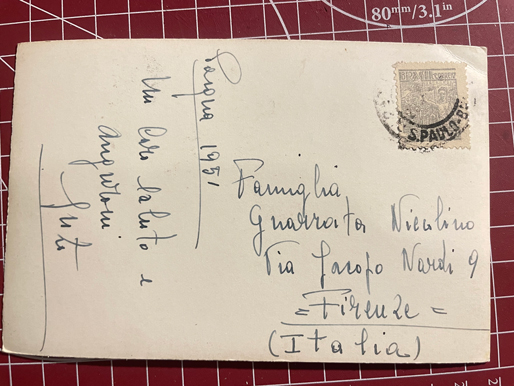 80mm/3.1in
BRASIL
S.PAULO-B
Pasqua 1951
Un Caro Saluto e
Auguroni
Famiglia
Guarrata Nicolino
Via Jacopo Nardi 9
=Firenze=
(Italia)